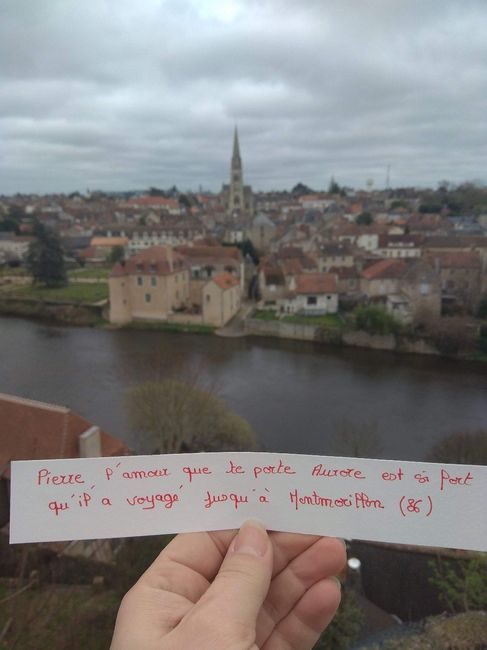 Pierre, l'amour que te porte Aurore est si fort
qu'il a voyagé jusqu'à Montmorillon (86)